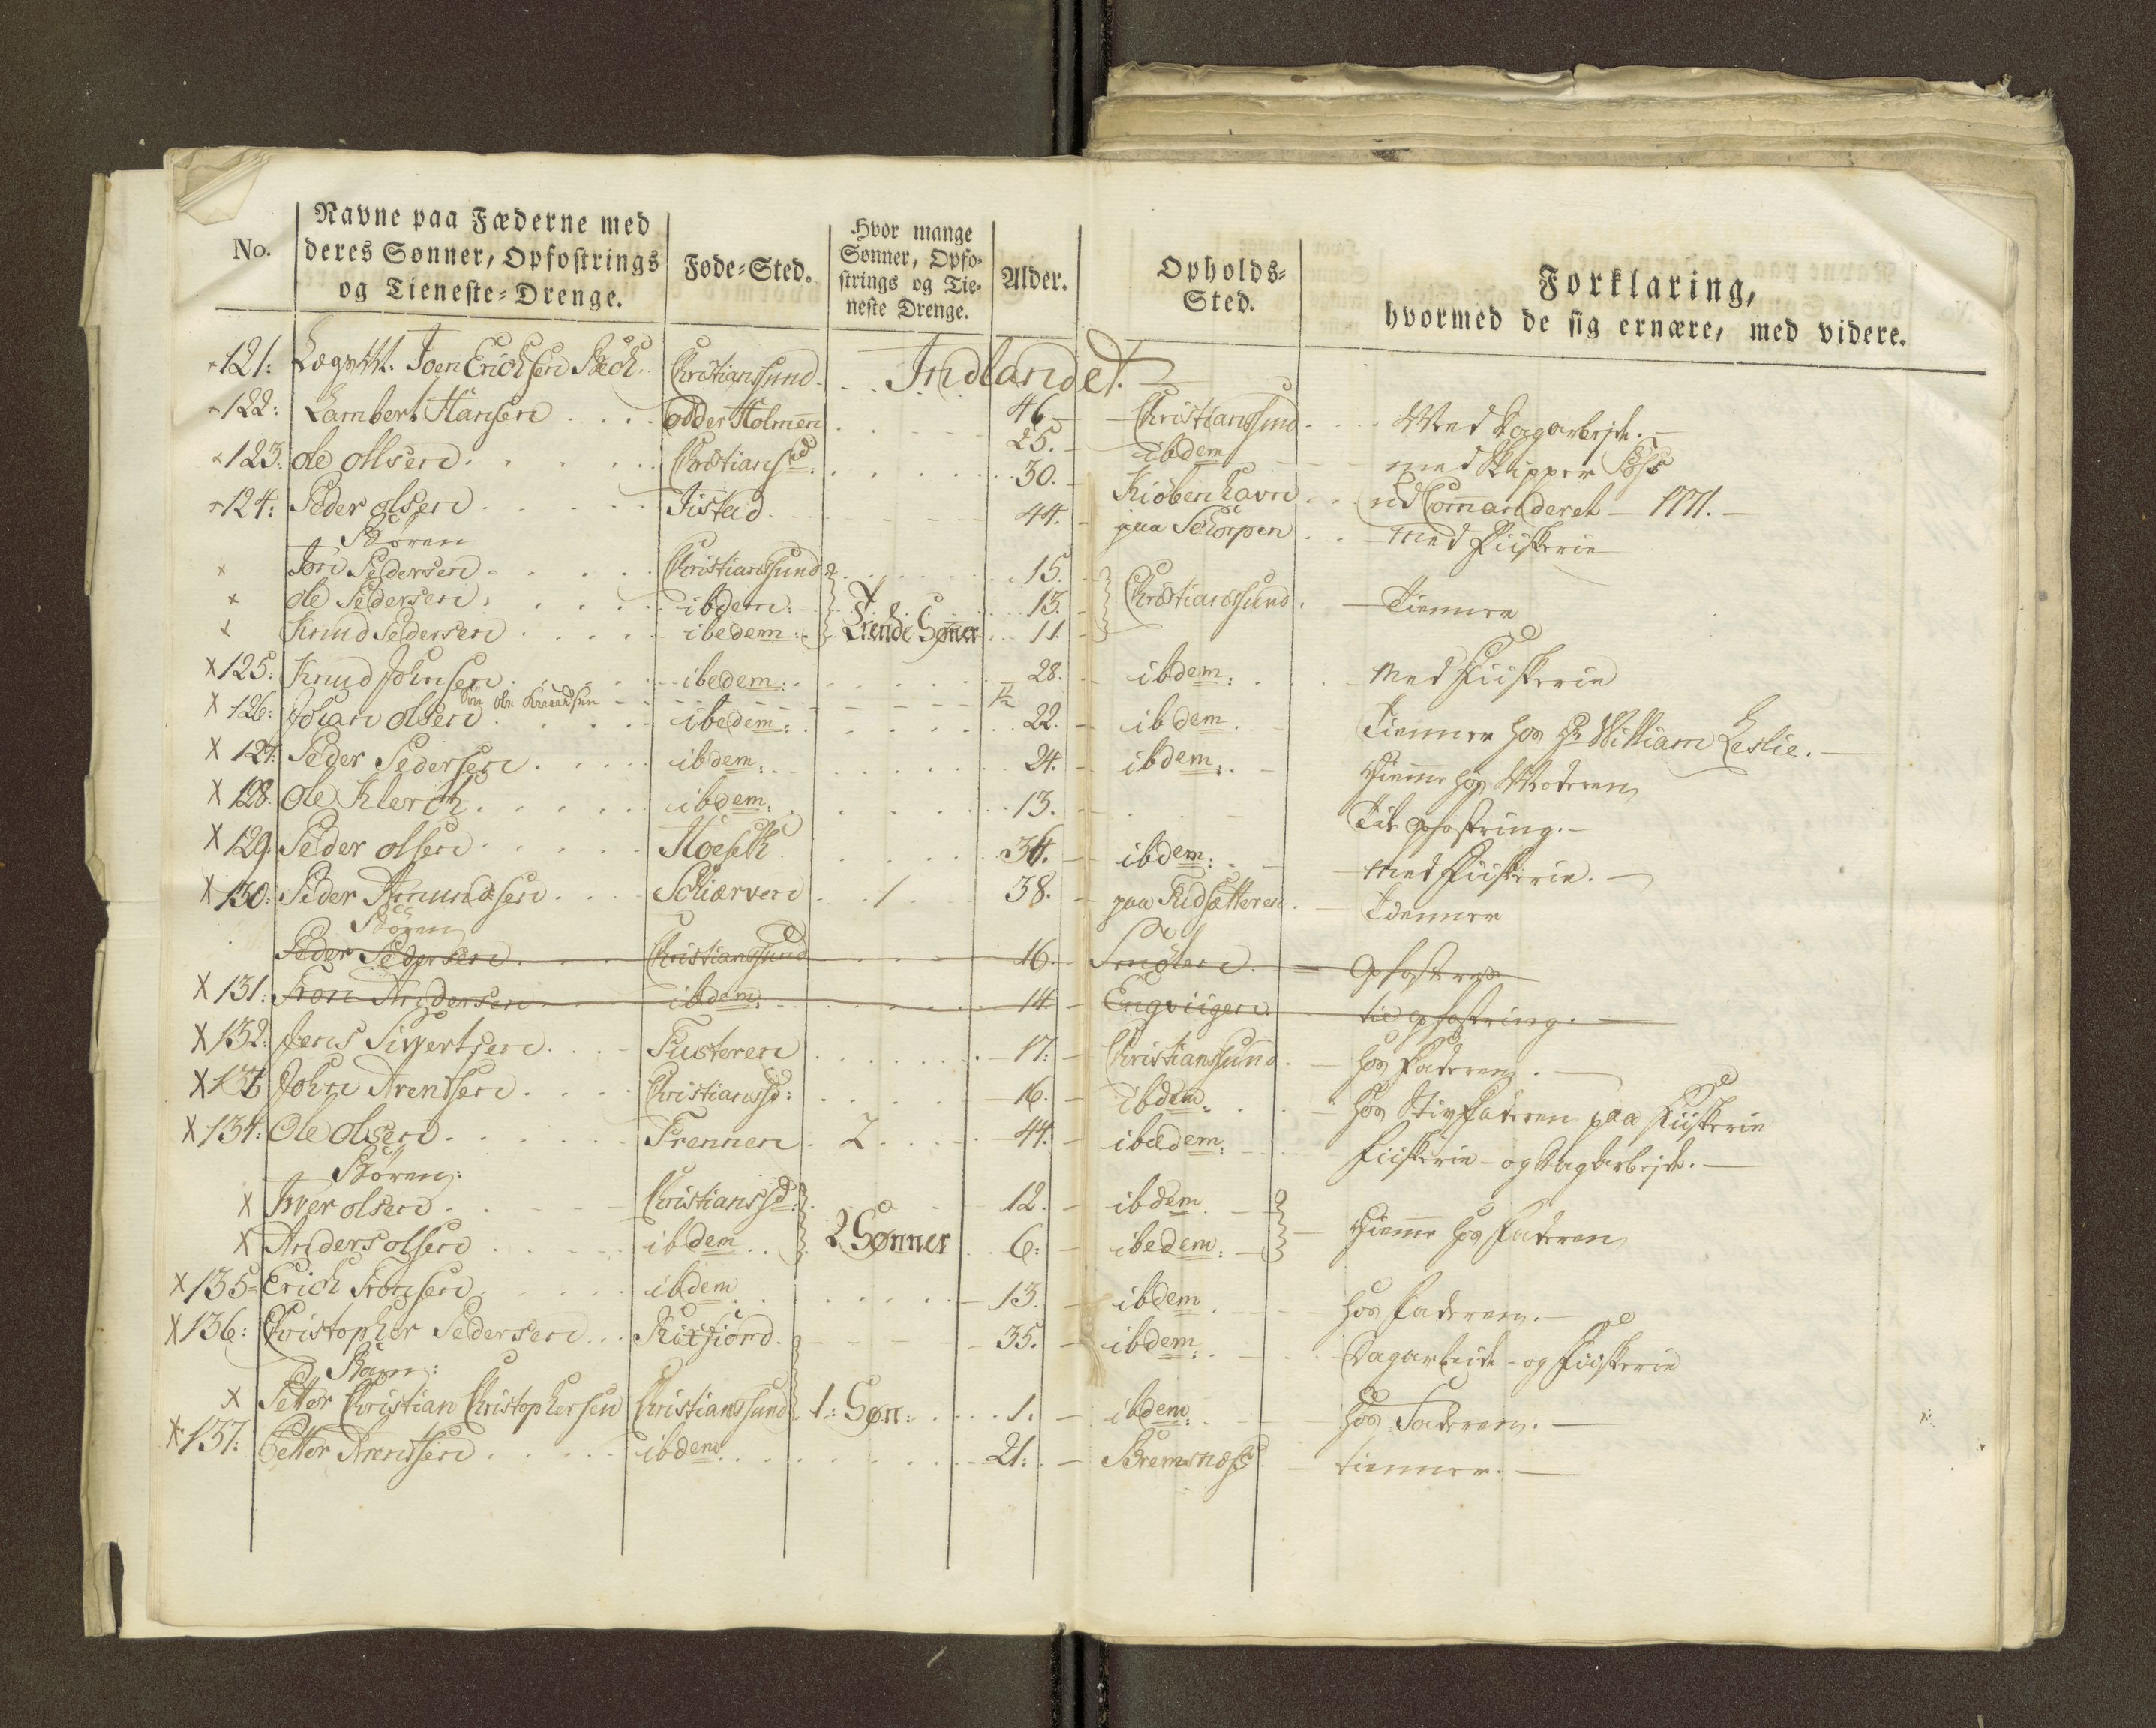 No.
Navne paa Fæderne med
deres Sønner, Opfostrings
og Tieneste=Drenge.
Føde=Sted.
Hvor mange
Sønner, Opfo-
strings og Tie-
neste Drenge.
Alder.
Opholds=
Sted.
Forklaring,
hvormed de sig ernære, med videre.
121: Joen Erichsen Christianssund Indlandet.
122: Lambert Hansen odder Holmen 46. Christianssund Med Dagarbejde.
123. ole ollsen Christians 25. ibdem med Skipper
30. Kiøbenhavn udCom̄anderet 1771.
124: Peder olsen Tistad 44. paa Schorpen Med Fiskerie
Børen
x Jon Pedersen Christianssund 15.
x ole Pedersen ibdem: 13. Christianssund Tienner
x Knud Pedersen ibedem: Trende Søn̄er 11.
X 125: Knud Johnsen ibedem: 28. ibdem: Med Fiskerie
Sön ole Knudsen ½
X 126: Johan olsen ibedem: 22. ibdem Tienner hos Hr William Leslie.
X 127: Peder Pedersen ibdem: 24. ibdem: Hiem̄e hos Moderen
X 128. Ole Klerch ibdem: 13. Til opfostring.
X 129. Peder olsen Hoeseth 36. ibdem: Med Fiskerie.
X 130: Peder Amundsen Schiærven 1 38. paa Tudsætteren Tienner
Børen
Peder Pedersen Christianssund 16. Smölen Opfostres
X 131: Tron Andersen ibdem: 14 Engviigen til opfostring.
X 132: Jens Sivertsen Tusteren 17: Christianssund hos Faderen.
X 133 John Arentsen Christianssd: 16. ibdem: hos Stiffaderen paa Fiskerie
X 134: Ole olsen Frennen 2 44. ibedem: Fiskerie og Dagarbejde.
Børen:
X Iver olsen Christianssd: 12. ibdem
X Anders olsen ibdem 2 Sønner 6: ibedem: Hiem̄e hos Faderen
X 135 Erich Tronsen ibdem 13. ibdem hos Faderen.
X 136: Christopher Pedersen 35. ibdem: Dagarbeide og Fiskerie
Barn:
X Petter Christian Christophersen Christianssund 1: Søn: 1. ibdem: hos Faderen.
X 137: Petter Arentsen ibdem 21. Bremsnæss tienner.